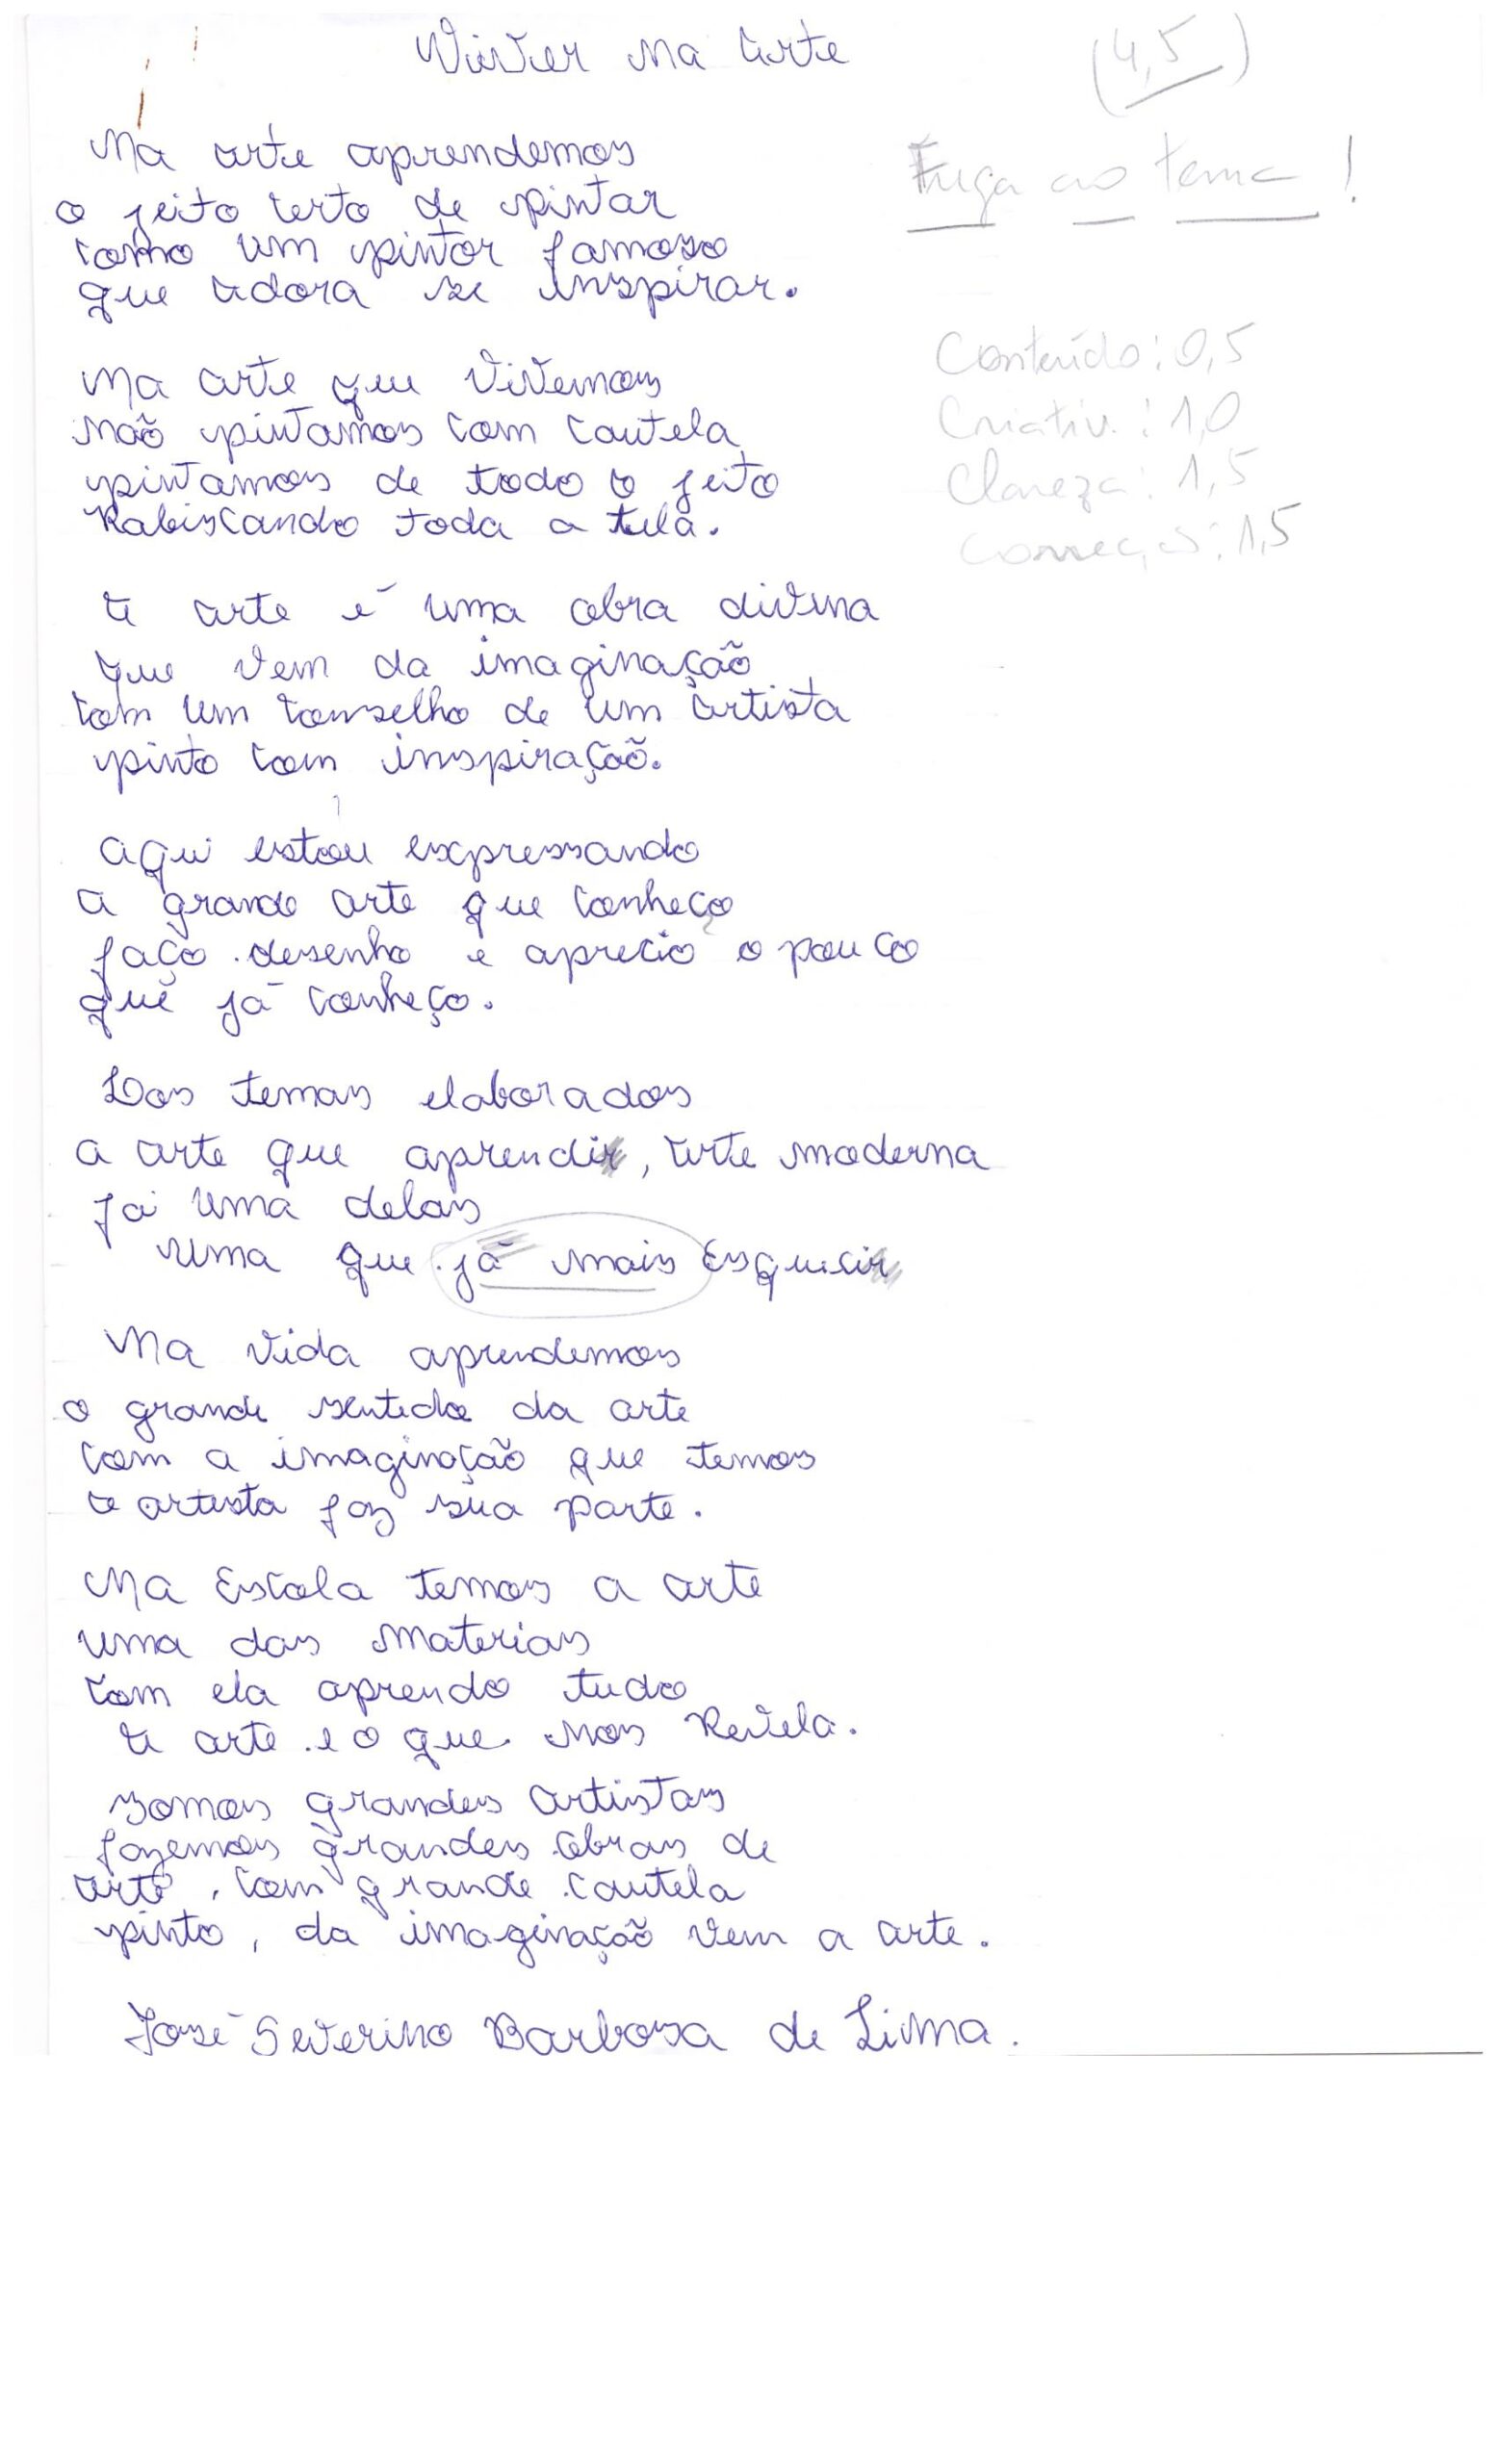 Viver na arte
(4,5)
Fuga ao tema!
Na arte aprendemos
o jeito certo de pintar
como um pintor famoso
que adora se inspirar.
Conteúdo: 0,5
Criativ.: 1,0
Clareza: 1,5
Correção: 1,5
Na arte que vivemos
não pintamos com cautela
pintamos de todo o jeito
Rabiscando toda a tela.
A arte é uma obra divina
que vem da imaginação
com um conselho de um artista
pinto com inspiração.
Aqui estou expressando
a grande arte que conheço
faço desenho e aprecio o pouco
que já conheço.
Dos temas elaborados
a arte que aprendi, arte moderna
foi uma delas
uma que já mais Esqueci
Na vida aprendemos
o grande sentido da arte
com a imaginação que temos
o artista faz sua parte.
Na Escola temos a arte
uma das materias
com ela aprendo tudo
a arte e o que nos Revela.
somos grandes artistas
fazemos grandes obras de
arte, com grande cautela
pinto, da imaginação vem a arte.
José Severino Barbosa de Lima.